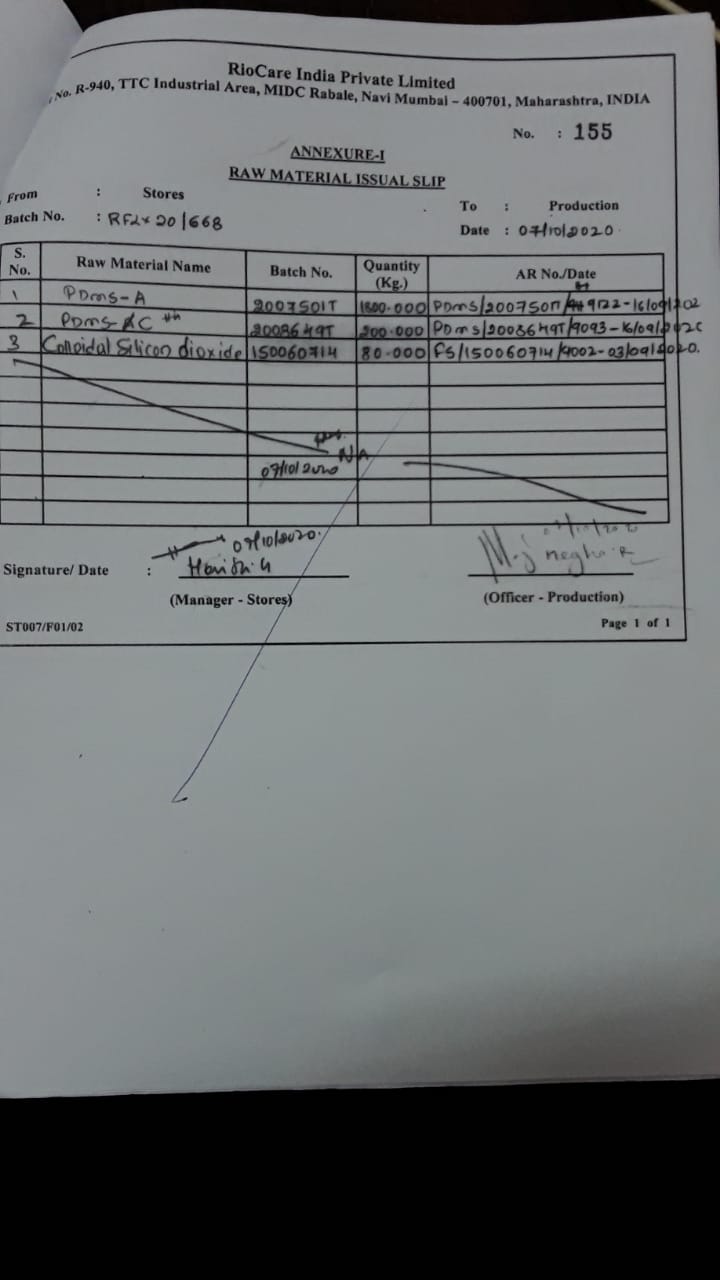 RioCare India Private Limited
No. R-940, TTC Industrial Area, MIDC Rabale, Navi Mumbai – 400701, Maharashtra, INDIA
No. : 155
ANNEXURE-I
RAW MATERIAL ISSUAL SLIP
From : Stores
To : Production
Batch No. : RFLX20/668
Date : 07/10/2020
S. No. Raw Material Name Batch No. Quantity (Kg.) AR No./Date
1 PDMS-A 2007501T 1800.000 PDMS/2007501T/9122-16/09/202
2 PDMS C 2008649T 200.000 PDMS/2008649T/9093-16/09/202
3 Colloidal Silicon dioxide 150060714 80.000 FS/150060714/9002-03/09/2020.
NA
07/10/2020
07/10/2020.
Signature/ Date :
(Manager - Stores) (Officer - Production)
ST007/F01/02 Page 1 of 1